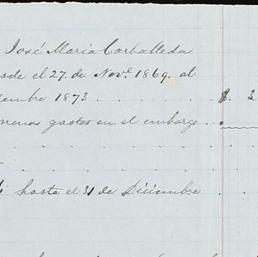 José María Carballeda
sde el 27. de Nov.e 1869. al
iembre 1873 . . . . . . . . . $. 3
menos gastos en el embargo . .
hasta el 31 de Diciembre